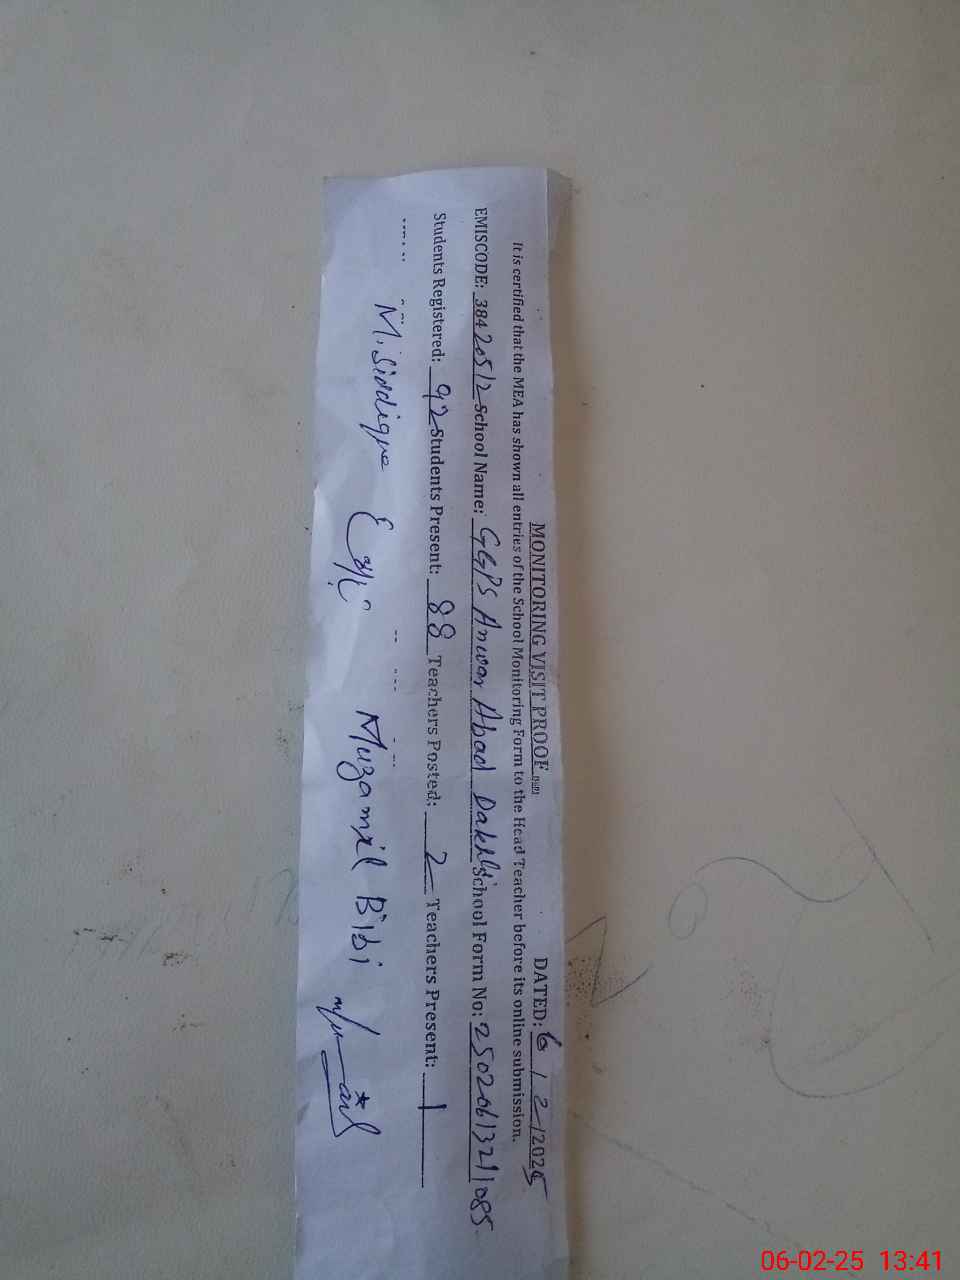 MONITORING VISIT PROOF DATED: 6/2/2025
It is certified that the MEA has shown all entries of the School Monitoring Form to the Head Teacher before its online submission.
EMISCODE: 38420512 School Name: GGPS Anwar Abad Dakhli School Form No: 25020613211085
Students Registered: 92 Students Present: 88 Teachers Posted: 2 Teachers Present: 1
M. Siddique Muzamil Bibi
06-02-25 13:41